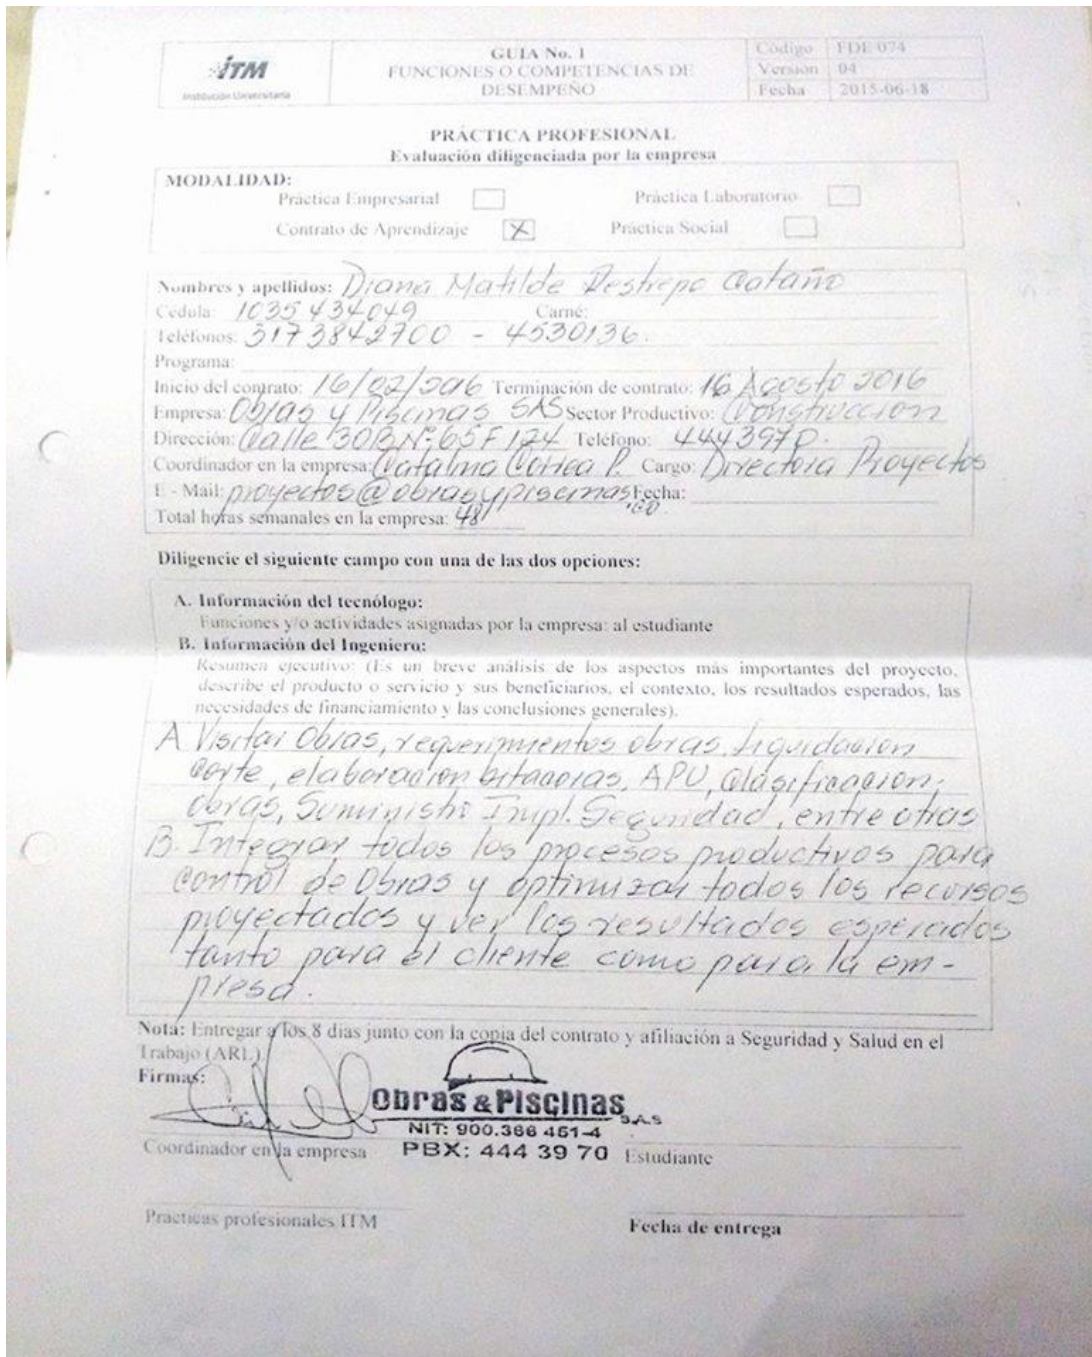 iTM
Institución Universitaria
GUIA No. 1
FUNCIONES O COMPETENCIAS DE
DESEMPEÑO
Código FDE 074
Versión 04
Fecha 2015-06-18
PRÁCTICA PROFESIONAL
Evaluación diligenciada por la empresa
MODALIDAD:
Práctica Empresarial Práctica Laboratorio
Contrato de Aprendizaje X Práctica Social
Nombres y apellidos: Diana Matilde Restrepo Cataño
Cédula: 1035434049 Carné:
Teléfonos: 3173842700 - 4530136.
Programa:
Inicio del contrato: 16/02/2016 Terminación de contrato: 16 Agosto 2016
Empresa: Obras y Piscinas SAS Sector Productivo: Construccion
Dirección: Calle 30B N° 65F 124 Teléfono: 4443970.
Coordinador en la empresa: Catalina Correa P. Cargo: Directora Proyectos
E - Mail: proyectos@obrasypiscinas.co Fecha:
Total horas semanales en la empresa: 48
Diligencie el siguiente campo con una de las dos opciones:
A. Información del tecnólogo:
Funciones y/o actividades asignadas por la empresa: al estudiante
B. Información del Ingeniero:
Resumen ejecutivo: (Es un breve análisis de los aspectos más importantes del proyecto,
describe el producto o servicio y sus beneficiarios, el contexto, los resultados esperados, las
necesidades de financiamiento y las conclusiones generales).
A Visitar Obras, requerimientos obras, liquidacion
corte, elaboracion bitacoras, APU, Clasificacion,
obras, Suministro Impl. Seguridad, entre otras
B. Integrar todos los procesos productivos para
control de Obras y optimizar todos los recursos
proyectados y ver los resultados esperados
tanto para el cliente como para la em-
presa.
Nota: Entregar a los 8 dias junto con la copia del contrato y afiliación a Seguridad y Salud en el
Trabajo (ARL).
Firmas:
Obras & Piscinas S.A.S
NIT: 900.366 451-4
PBX: 444 39 70
Coordinador en la empresa Estudiante
Practicas profesionales ITM Fecha de entrega